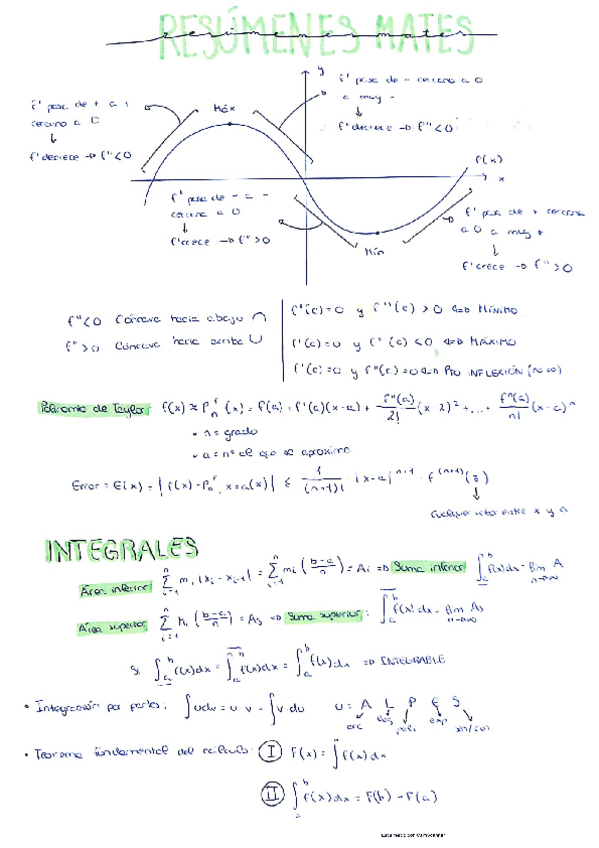 RESÚMENES MATES
resúmenes mates
y
f' pasa de - cercano a 0
a muy -
f' decrece → f''<0
f' pasa de + a +
cercano a 0
↓
f' decrece → f''<0
Máx
f(x)
x
f' pasa de - a -
cercano a 0
↓
f' crece → f''>0
Mín
f' pasa de + cercano
a 0 a muy +
↓
f' crece → f''>0
f''<0 Cóncava hacia abajo ∩
f''>0 Cóncava hacia arriba ∪
f'(c)=0 y f''(c) > 0 ⇔ MÍNIMO
f'(c)=0 y f''(c) < 0 ⇔ MÁXIMO
f'(c)=0 y f''(c)=0 ⇔ PTO INFLEXIÓN
Polinomio de Taylor: f(x) ≈ Pₙᶠ(x) = f(a) + f'(a)(x-a) + f''(a)/2! (x-2)² + ... + fⁿ(a)/n! (x-a)ⁿ
• n = grado
• a = nº al que se aproxima
Error = E(x) = | f(x) - Pₙᶠ, x=a(x) | ≤ 1/(n+1)! |x-a|ⁿ⁺¹ · f⁽ⁿ⁺¹⁾(z)
↓
cualquier valor entre x y a
INTEGRALES
Área inferior: ∑ᵢ₌₁ⁿ mᵢ (xᵢ - xᵢ₋₁) = ∑ᵢ₌₁ⁿ mᵢ ((b-a)/n) = Aᵢ ⇒ Suma inferior ∫ₐᵇ f(x)dx = lim n→∞ A
Área superior ∑ᵢ₌₁ⁿ Mᵢ ((b-a)/n) = As ⇒ Suma superior: ∫ₐᵇ f(x)dx = lim n→∞ As
Si ∫ₐᵇ f(x)dx = ∫ₐᵇ f(x)dx = ∫ₐᵇ f(x)dx ⇒ INTEGRABLE
• Integración por partes: ∫udv = u·v - ∫v·du u = A L P E S
arc log poli exp sen/cos
• Teorema fundamental del cálculo: I F(x) = ∫f(x)dx
II ∫ₐᵇ f(x)dx = F(b) - F(a)